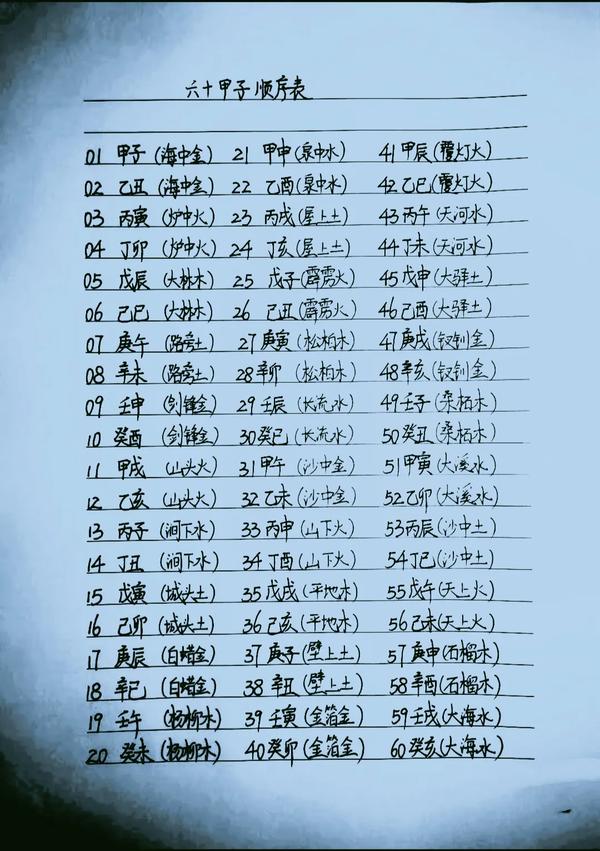 六十甲子顺序表
01 甲子 (海中金) 21 甲申 (泉中水) 41 甲辰 (覆灯火)
02 乙丑 (海中金) 22 乙酉 (泉中水) 42 乙巳 (覆灯火)
03 丙寅 (炉中火) 23 丙戌 (屋上土) 43 丙午 (天河水)
04 丁卯 (炉中火) 24 丁亥 (屋上土) 44 丁未 (天河水)
05 戊辰 (大林木) 25 戊子 (霹雳火) 45 戊申 (大驿土)
06 己巳 (大林木) 26 己丑 (霹雳火) 46 己酉 (大驿土)
07 庚午 (路旁土) 27 庚寅 (松柏木) 47 庚戌 (钗钏金)
08 辛未 (路旁土) 28 辛卯 (松柏木) 48 辛亥 (钗钏金)
09 壬申 (剑锋金) 29 壬辰 (长流水) 49 壬子 (桑柘木)
10 癸酉 (剑锋金) 30 癸巳 (长流水) 50 癸丑 (桑柘木)
11 甲戌 (山头火) 31 甲午 (沙中金) 51 甲寅 (大溪水)
12 乙亥 (山头火) 32 乙未 (沙中金) 52 乙卯 (大溪水)
13 丙子 (涧下水) 33 丙申 (山下火) 53 丙辰 (沙中土)
14 丁丑 (涧下水) 34 丁酉 (山下火) 54 丁巳 (沙中土)
15 戊寅 (城头土) 35 戊戌 (平地木) 55 戊午 (天上火)
16 己卯 (城头土) 36 己亥 (平地木) 56 己未 (天上火)
17 庚辰 (白蜡金) 37 庚子 (壁上土) 57 庚申 (石榴木)
18 辛巳 (白蜡金) 38 辛丑 (壁上土) 58 辛酉 (石榴木)
19 壬午 (杨柳木) 39 壬寅 (金箔金) 59 壬戌 (大海水)
20 癸未 (杨柳木) 40 癸卯 (金箔金) 60 癸亥 (大海水)